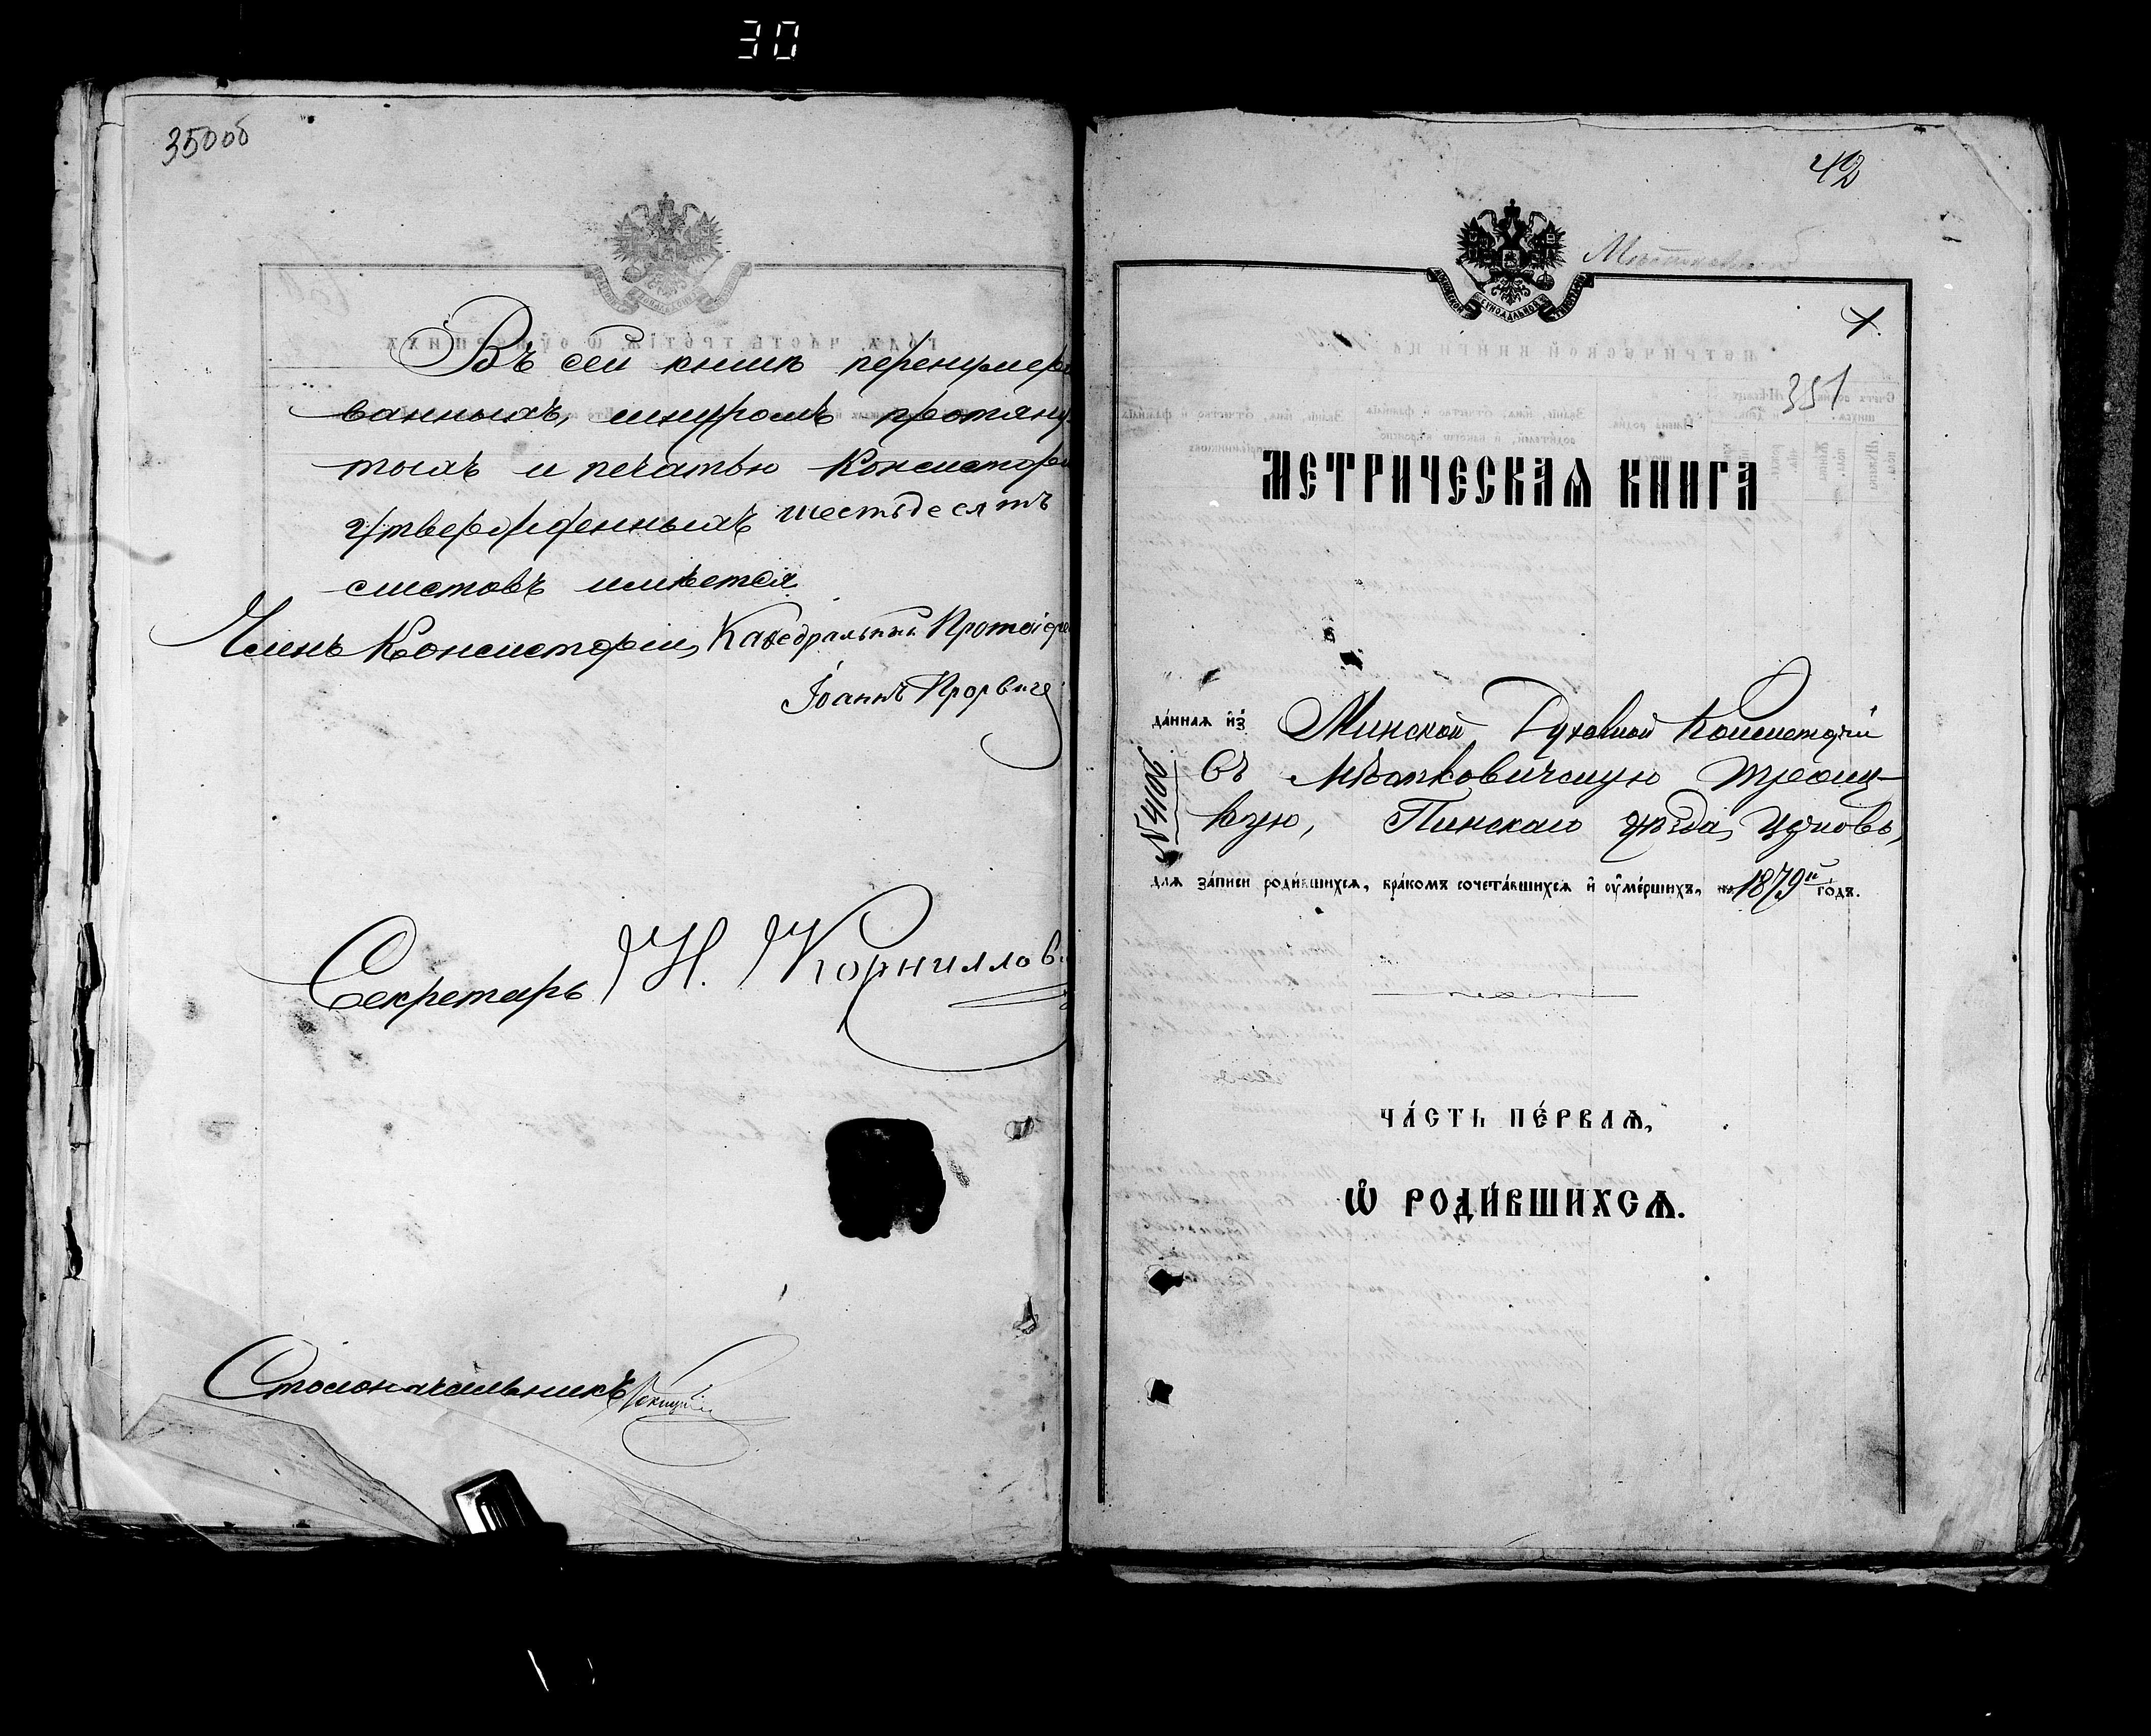 30
350об
Въ сей книгѣ перенумеро
ванныхъ, шнуромъ протяну
тыхъ и печатью Консисторіи
утвержденныхъ шестьдесятъ
листовъ имѣется
Членъ Консисторіи, Каѳедральный Протоіере
Іоаннъ
Секретарь Н. Корниллов
Столоначальникъ
42
351
МЕТРИЧЕСКАѦ КНИГА
да́ннаѧ и҆з̾ Минской Духовной Консисторіи
Въ Мѣстковичскую Троиц-
кую, Пинскаго уѣзда, церковь,
№4106
длѧ за́писи роди́вшихсѧ, бра́комъ сочета́вшихсѧ и҆ ᲂу҆ме́ршихъ, на 1879й го́дъ.
ЧА́СТЬ ПЕ́РВАѦ,
Ѡ҆ РОДИ́ВШИХСѦ.